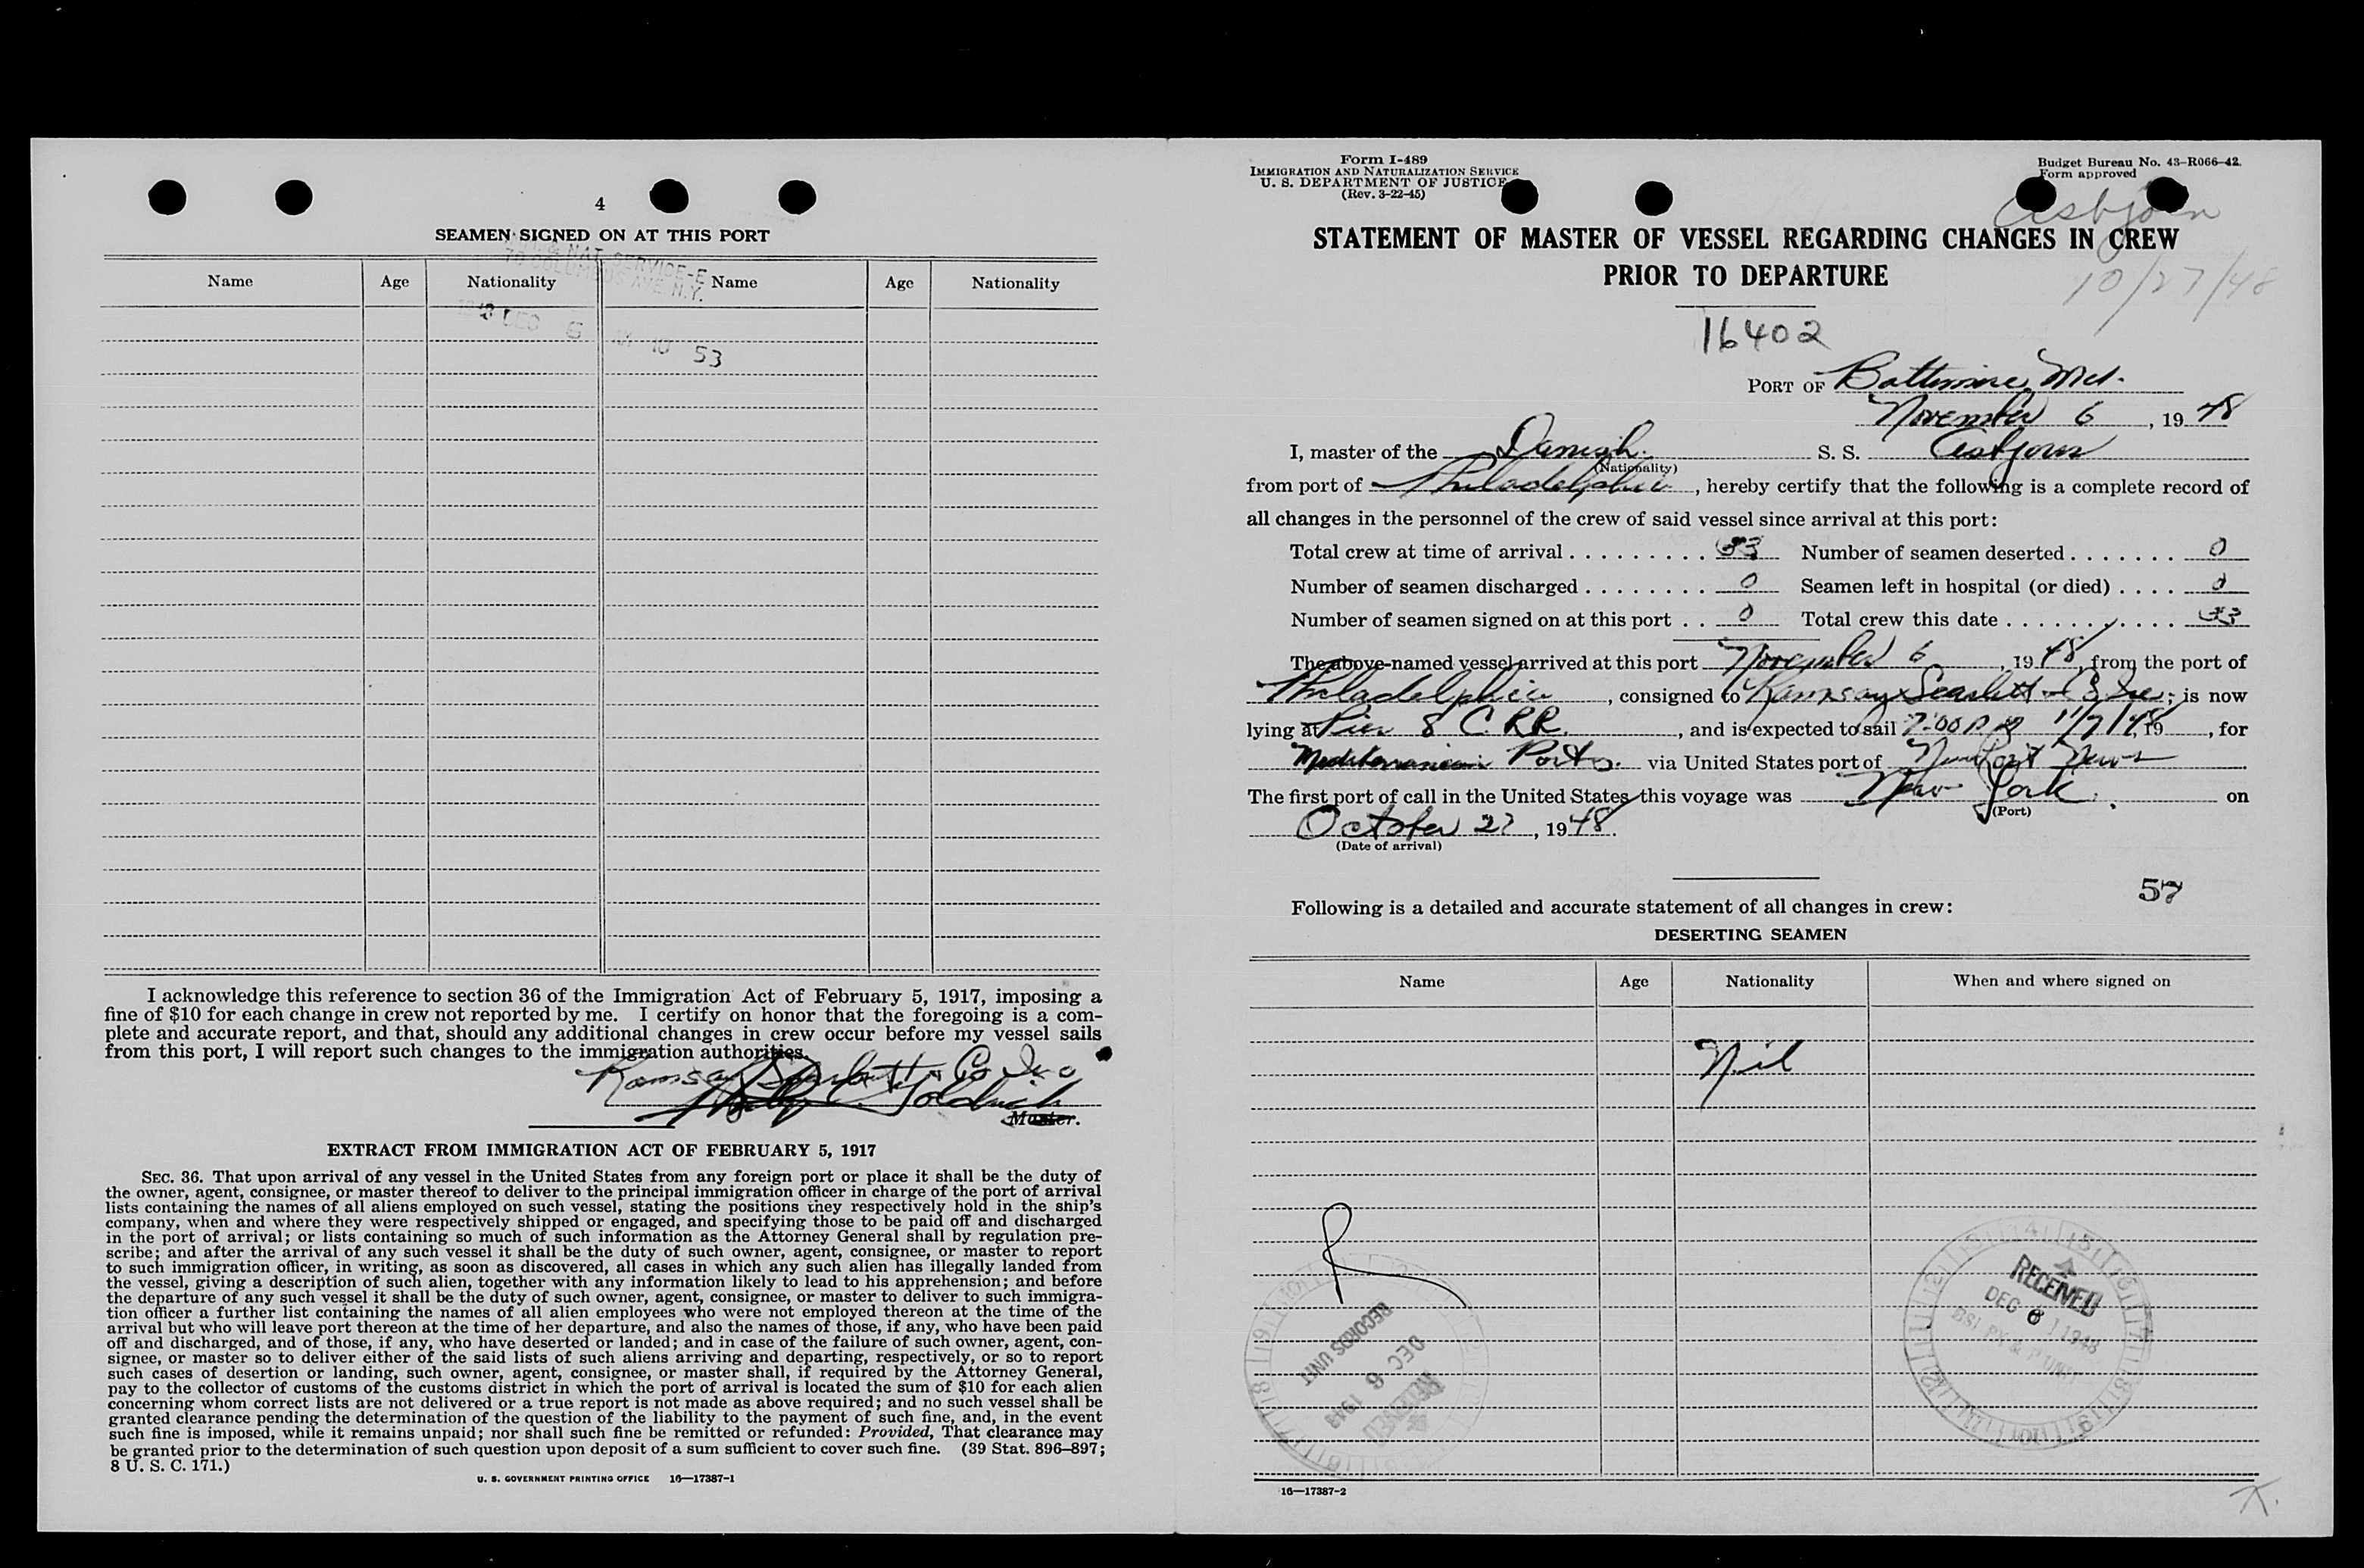 4
SEAMEN SIGNED ON AT THIS PORT
Name Age Nationality Name Age Nationality
53
I acknowledge this reference to section 36 of the Immigration Act of February 5, 1917, imposing a
fine of $10 for each change in crew not reported by me. I certify on honor that the foregoing is a com-
plete and accurate report, and that, should any additional changes in crew occur before my vessel sails
from this port, I will report such changes to the immigration authorities.
Ramsay Scarlett & Co Inc
Goldrick
Master.
EXTRACT FROM IMMIGRATION ACT OF FEBRUARY 5, 1917
SEC. 36. That upon arrival of any vessel in the United States from any foreign port or place it shall be the duty of
the owner, agent, consignee, or master thereof to deliver to the principal immigration officer in charge of the port of arrival
lists containing the names of all aliens employed on such vessel, stating the positions they respectively hold in the ship's
company, when and where they were respectively shipped or engaged, and specifying those to be paid off and discharged
in the port of arrival; or lists containing so much of such information as the Attorney General shall by regulation pre-
scribe; and after the arrival of any such vessel it shall be the duty of such owner, agent, consignee, or master to report
to such immigration officer, in writing, as soon as discovered, all cases in which any such alien has illegally landed from
the vessel, giving a description of such alien, together with any information likely to lead to his apprehension; and before
the departure of any such vessel it shall be the duty of such owner, agent, consignee, or master to deliver to such immigra-
tion officer a further list containing the names of all alien employees who were not employed thereon at the time of the
arrival but who will leave port thereon at the time of her departure, and also the names of those, if any, who have been paid
off and discharged, and of those, if any, who have deserted or landed; and in case of the failure of such owner, agent, con-
signee, or master so to deliver either of the said lists of such aliens arriving and departing, respectively, or so to report
such cases of desertion or landing, such owner, agent, consignee, or master shall, if required by the Attorney General,
pay to the collector of customs of the customs district in which the port of arrival is located the sum of $10 for each alien
concerning whom correct lists are not delivered or a true report is not made as above required; and no such vessel shall be
granted clearance pending the determination of the question of the liability to the payment of such fine, and, in the event
such fine is imposed, while it remains unpaid; nor shall such fine be remitted or refunded: Provided, That clearance may
be granted prior to the determination of such question upon deposit of a sum sufficient to cover such fine. (39 Stat. 896–897;
8 U. S. C. 171.)
U. S. GOVERNMENT PRINTING OFFICE 16—17387-1
Form I-489
IMMIGRATION AND NATURALIZATION SERVICE
U. S. DEPARTMENT OF JUSTICE
(Rev. 3-22-45)
Budget Bureau No. 43-R066-42.
Form approved
Asbjorn
STATEMENT OF MASTER OF VESSEL REGARDING CHANGES IN CREW
PRIOR TO DEPARTURE
10/27/48
16402
PORT OF Baltimore, Md.
November 6, 1948
I, master of the Danish S. S. Asbjorn
(Nationality)
from port of Philadelphia, hereby certify that the following is a complete record of
all changes in the personnel of the crew of said vessel since arrival at this port:
Total crew at time of arrival . . . . . . . . . 33 Number of seamen deserted . . . . . . . 0
Number of seamen discharged . . . . . . . . 0 Seamen left in hospital (or died) . . . . 0
Number of seamen signed on at this port . . 0 Total crew this date . . . . . . . . . . . 33
The above-named vessel arrived at this port November 6, 1948, from the port of
Philadelphia, consigned to Ramsay Scarlett & Co Inc; is now
lying at Pier 8 C. RR., and is expected to sail 7:00 PM 11/7/48, 19, for
Mediterranean Ports. via United States port of Newport News
The first port of call in the United States this voyage was New York on
(Port)
October 27, 1948.
(Date of arrival)
57
Following is a detailed and accurate statement of all changes in crew:
DESERTING SEAMEN
Name Age Nationality When and where signed on
Nil
RECEIVED
DEC 6 1948
RECORDS UNIT
DEC 6 1948
RECEIVED
16—17387-2
K.